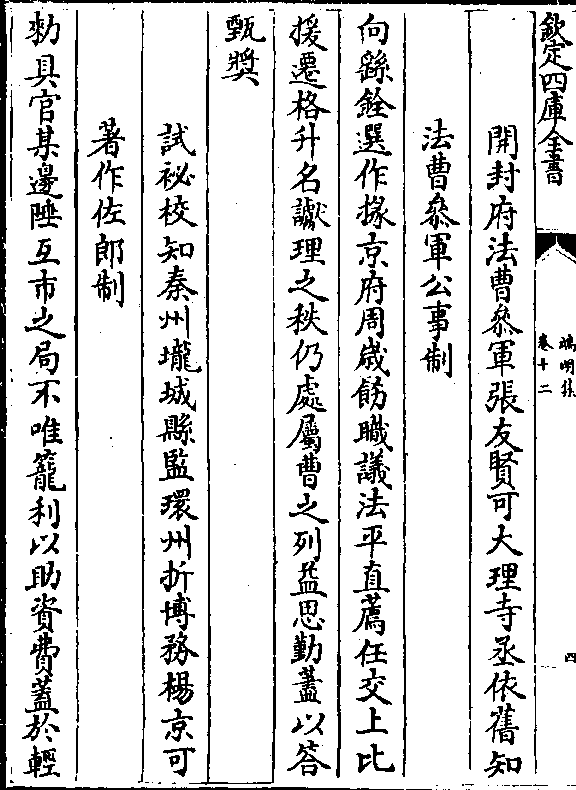 欽定四庫全書
端明集
卷十二
四
開封府法曹叅軍張友賢可大理寺丞依舊知
法曹叅軍公事制
向繇銓選作掾京府周歲飭職議法平直薦任交上比
援遷格升名讞理之秩仍處屬曹之列益思勤藎以答
甄奬
試祕校知秦州壠城縣監環州折博務楊京可
著作佐郎制
勑具官某邊陲互市之局不唯籠利以助資費蓋於輕